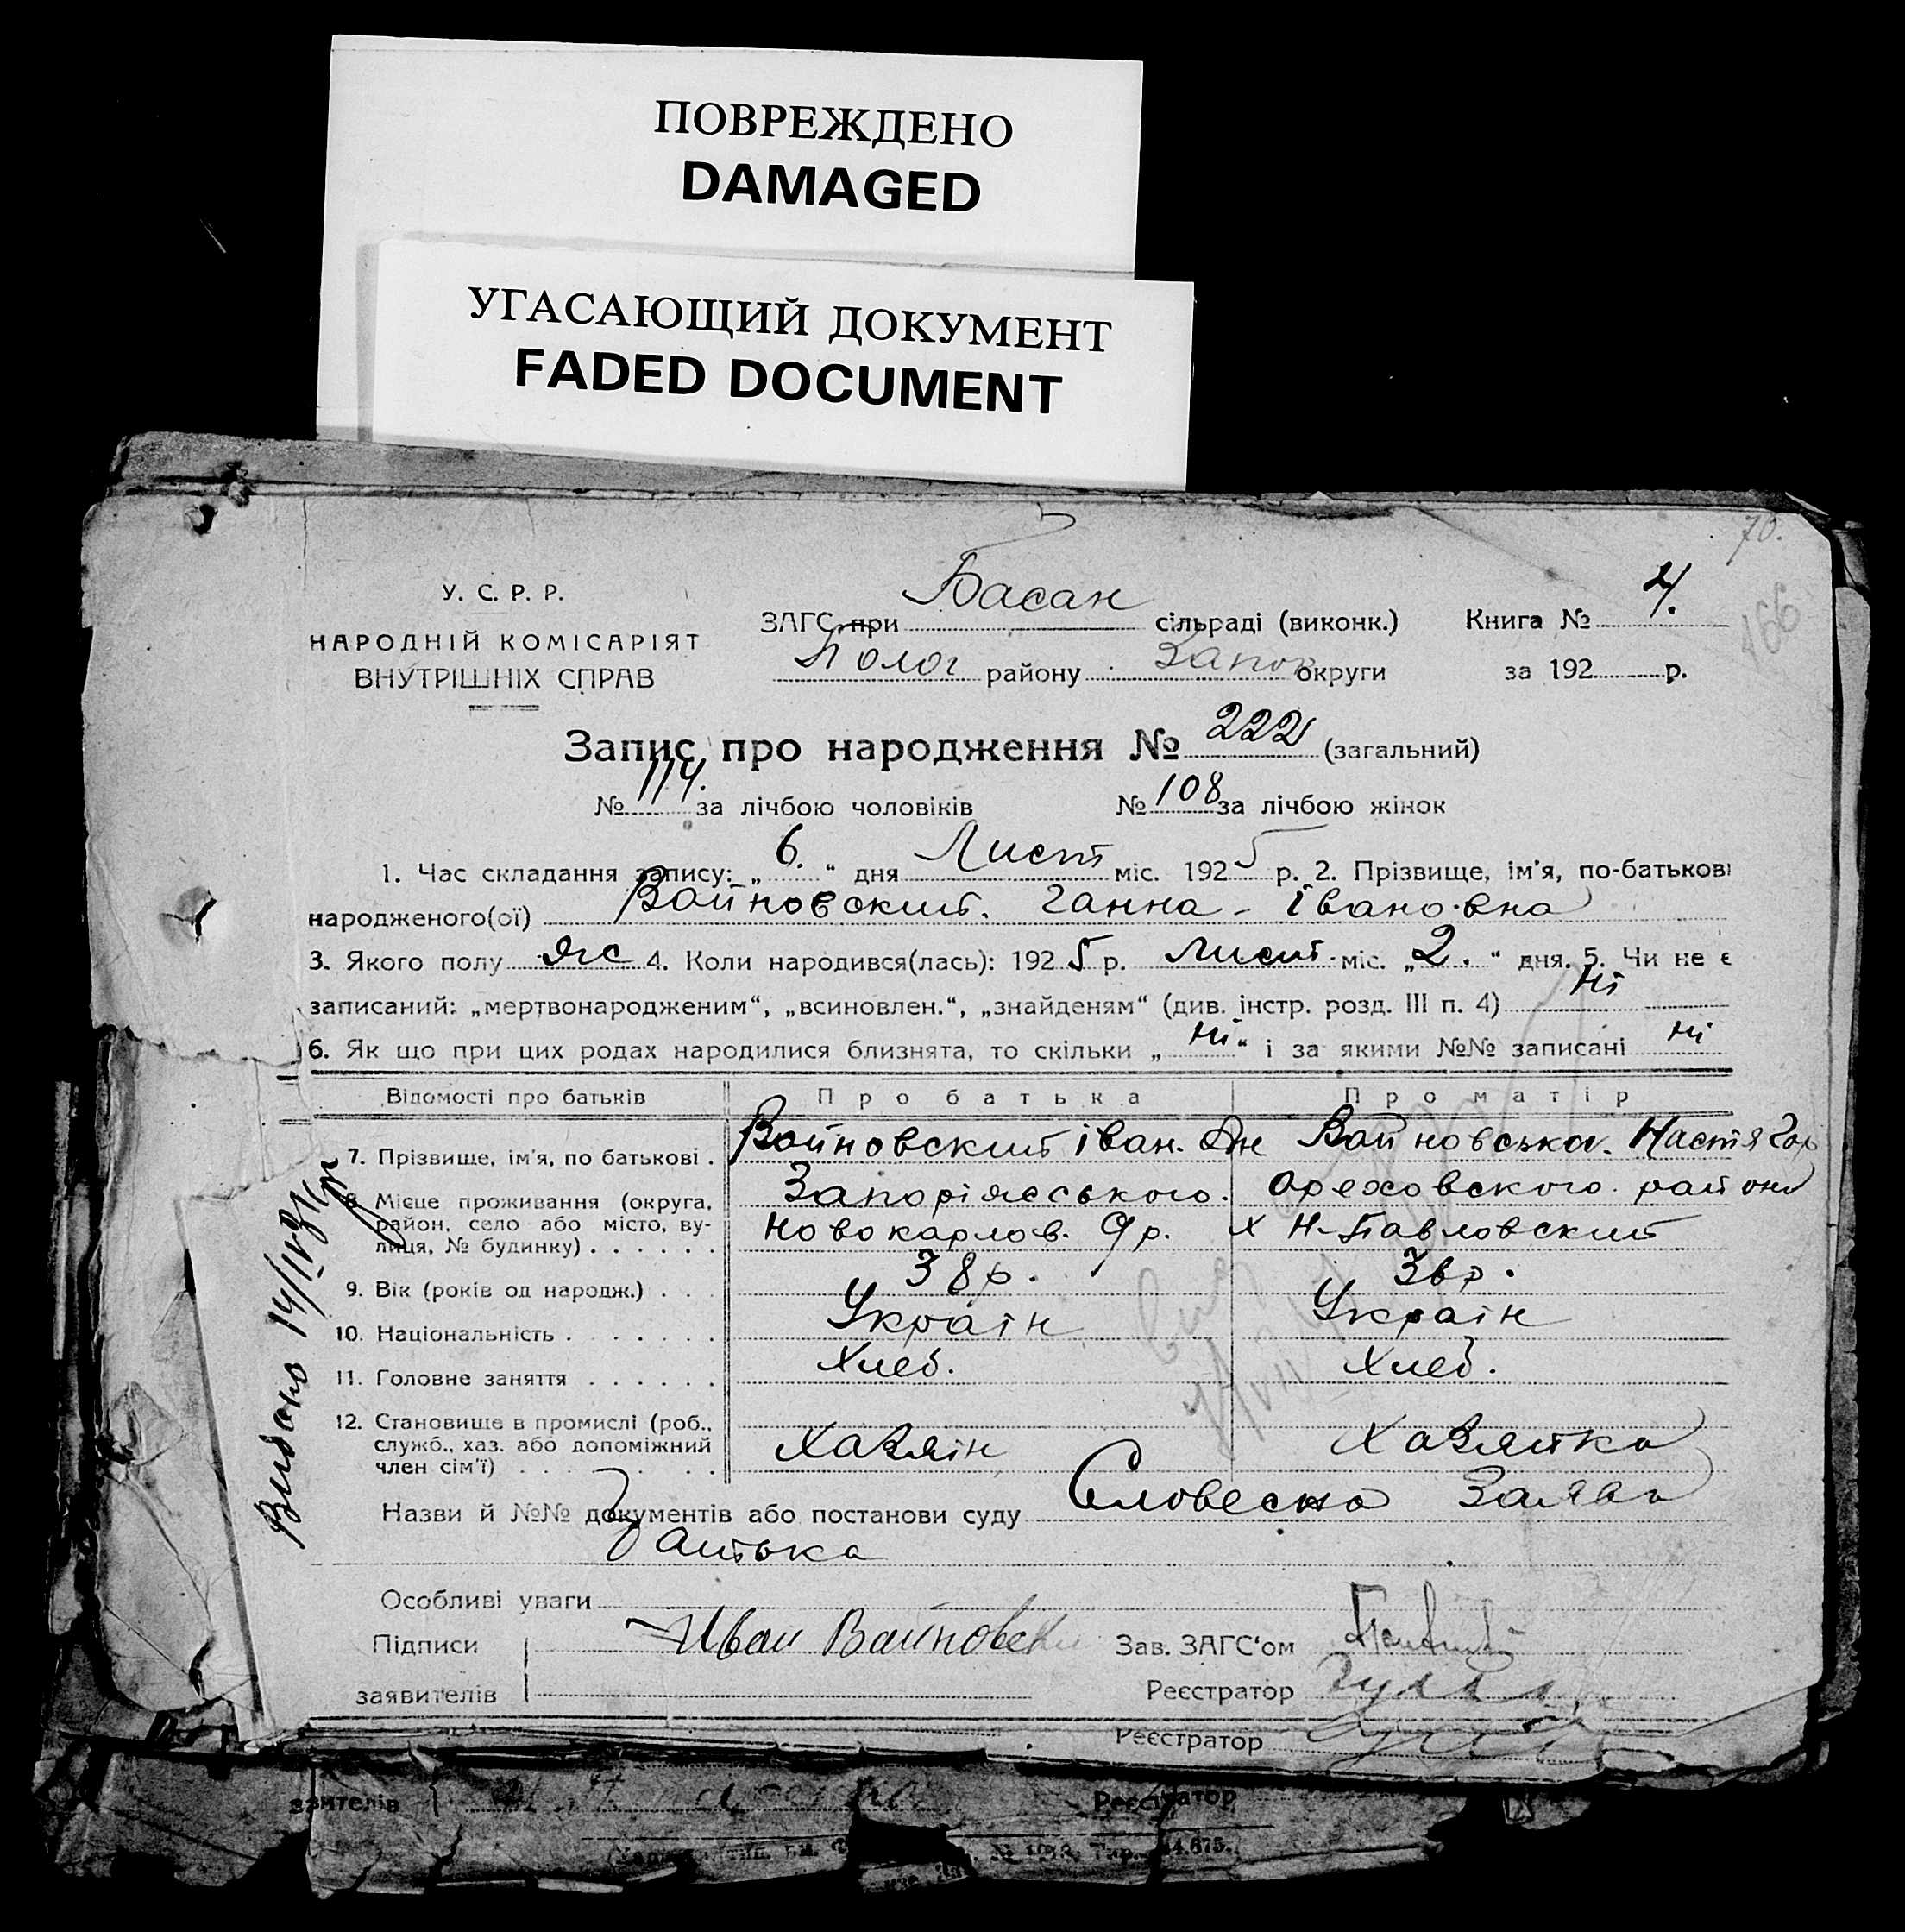 ПОВРЕЖДЕНО
DAMAGED
УГАСАЮЩИЙ ДОКУМЕНТ
FADED DOCUMENT
70.
166
У. С. Р. Р.
НАРОДНІЙ КОМІСАРІЯТ
ВНУТРІШНІХ СПРАВ
ЗАГС при Басан сільраді (виконк.)
Полог району Запор округи
Книга № 4.
за 192 р.
Запис про народження № 222 (загальний)
№ 114. за лічбою чоловіків № 108 за лічбою жінок
1. Час складання запису: „ 6. “ дня Лист міс. 1925 р. 2. Прізвище, ім'я, по-батькові
народженого(ої) Войновский. Ганна - Івановна
3. Якого полу жс 4. Коли народився(лась): 1925 р. лист. міс. „ 2. “ дня. 5. Чи не є
записаний: „мертвонародженим“, „всиновлен.“, „знайденям“ (див. інстр. розд. III п. 4) Ні
6. Як що при цих родах народилися близнята, то скільки „ Ні “ і за якими №№ записані Ні
Відомості про батьків Про батька Про матір
7. Прізвище, ім'я, по батькові . Войновский Іван. Войновська. Настя
8. Місце проживання (округа, район, село або місто, вулиця, № будинку) . . . . . .
Запоріжського. Ореховского. района
Новокарлов. х Н-Павловский
9. Вік (років од народж.) . . . 38р. 38р.
10. Національність . . . . . . . Україн Україн
11. Головне заняття . . . . . . Хлеб. Хлеб.
12. Становище в промислі (роб., служб., хаз. або допоміжний член сім'ї) . . . . . . . Хазяін Хазяйка
Назви й №№ документів або постанови суду Словесна Заява
батька
Особливі уваги
Підписи Иван Войновски Зав. ЗАГС‘ом
заявителів Реєстратор
Реєстратор
Видано 14/IV 31 р
заявителів Реєстратор